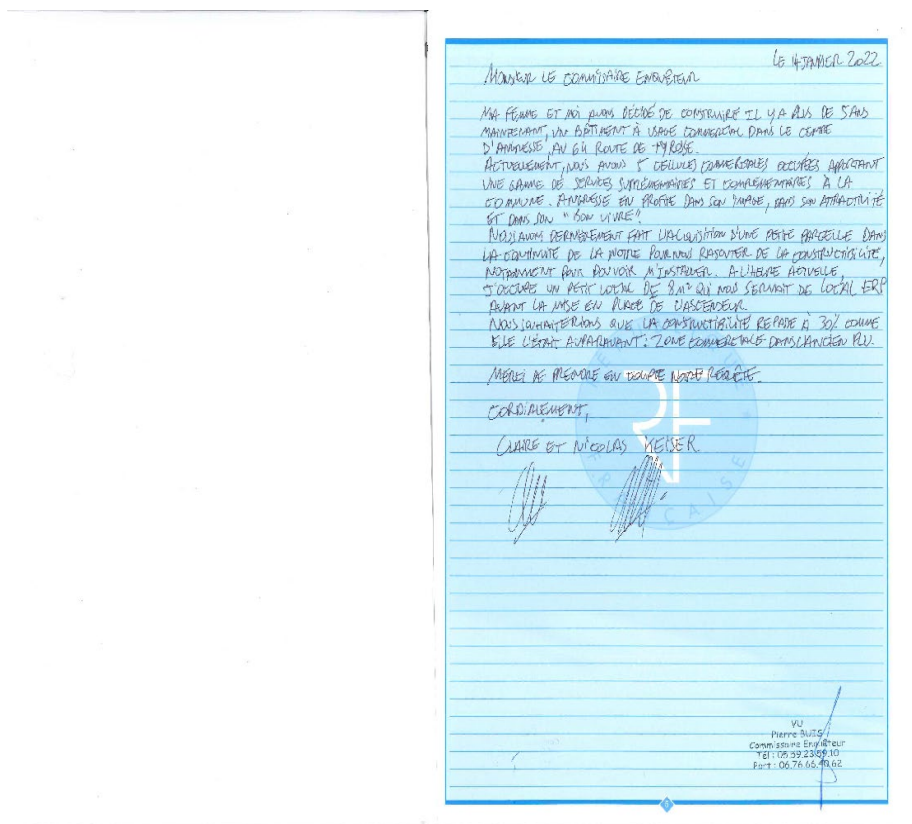 LE 14 JANVIER 2022
MONSIEUR LE COMMISSAIRE ENQUÊTEUR
MA FEMME ET MOI AVONS DÉCIDÉ DE CONSTRUIRE IL Y A PLUS DE 5 ANS
MAINTENANT, UN BÂTIMENT À USAGE COMMERCIAL DANS LE CENTRE
D'ANGRESSE, AU 64 ROUTE DE TYROSSE.
ACTUELLEMENT, NOUS AVONS 5 CELLULES COMMERCIALES OCCUPÉES APPORTANT
UNE GAMME DE SERVICES SUPPLÉMENTAIRES ET COMPLÉMENTAIRES À LA
COMMUNE. ANGRESSE EN PROFITE DANS SON IMAGE, DANS SON ATTRACTIVITÉ
ET DANS SON "BON VIVRE".
NOUS AVONS DERNIÈREMENT FAIT L'ACQUISITION D'UNE PETITE PARCELLE DANS
LA CONTINUITÉ DE LA NOTRE POUR NOUS RAJOUTER DE LA CONSTRUCTIBILITÉ,
NOTAMMENT POUR POUVOIR M'INSTALLER. A L'HEURE ACTUELLE,
J'OCCUPE UN PETIT LOCAL DE 8 m² QUI NOUS SERVAIT DE LOCAL ERP
AVANT LA MISE EN PLACE DE L'ASCENSEUR.
NOUS SOUHAITERIONS QUE LA CONSTRUCTIBILITÉ REPASSE À 30% COMME
ELLE L'ÉTAIT AUPARAVANT : ZONE COMMERCIALE DANS L'ANCIEN PLU.
MERCI DE PRENDRE EN COMPTE NOTRE REQUÊTE.
CORDIALEMENT,
CLAIRE ET NICOLAS KEISER
RF
VU
Pierre BUIS
Commissaire Enquêteur
Tél : 05.59.23.59.10
Port : 06.76.66.40.62